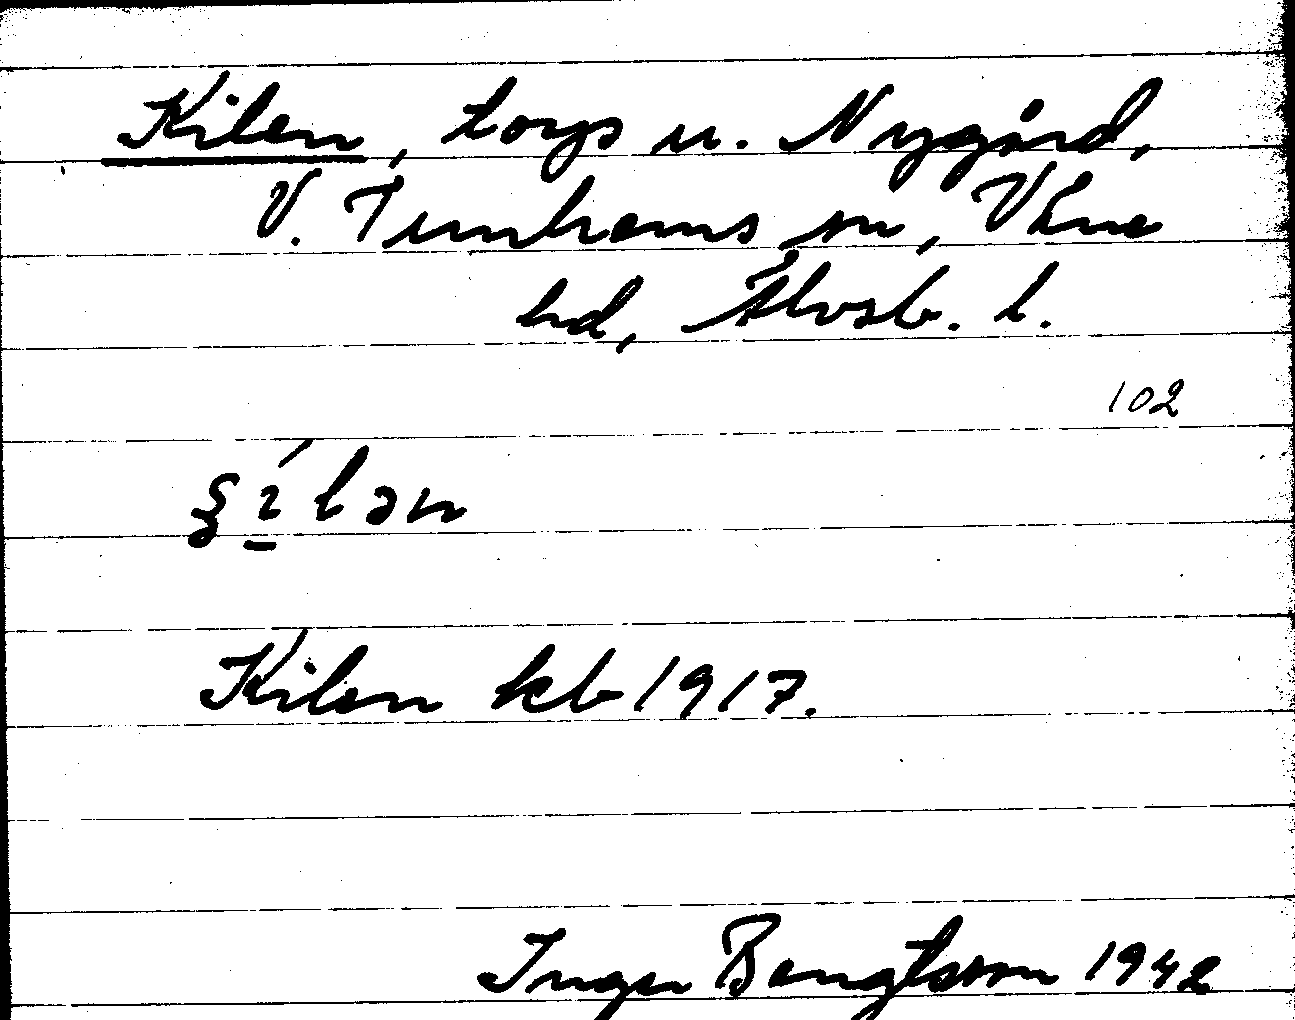 Kilen, torp u. Nygård,
V. Tunhems sn, Väne
hd, Älvsb. l.
102
Kilen kb 1917.
Inger Bengtsson 1942